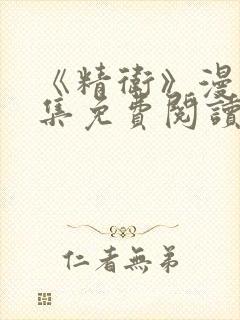 《精衛》漫
集免費閱讀
仁者無弟